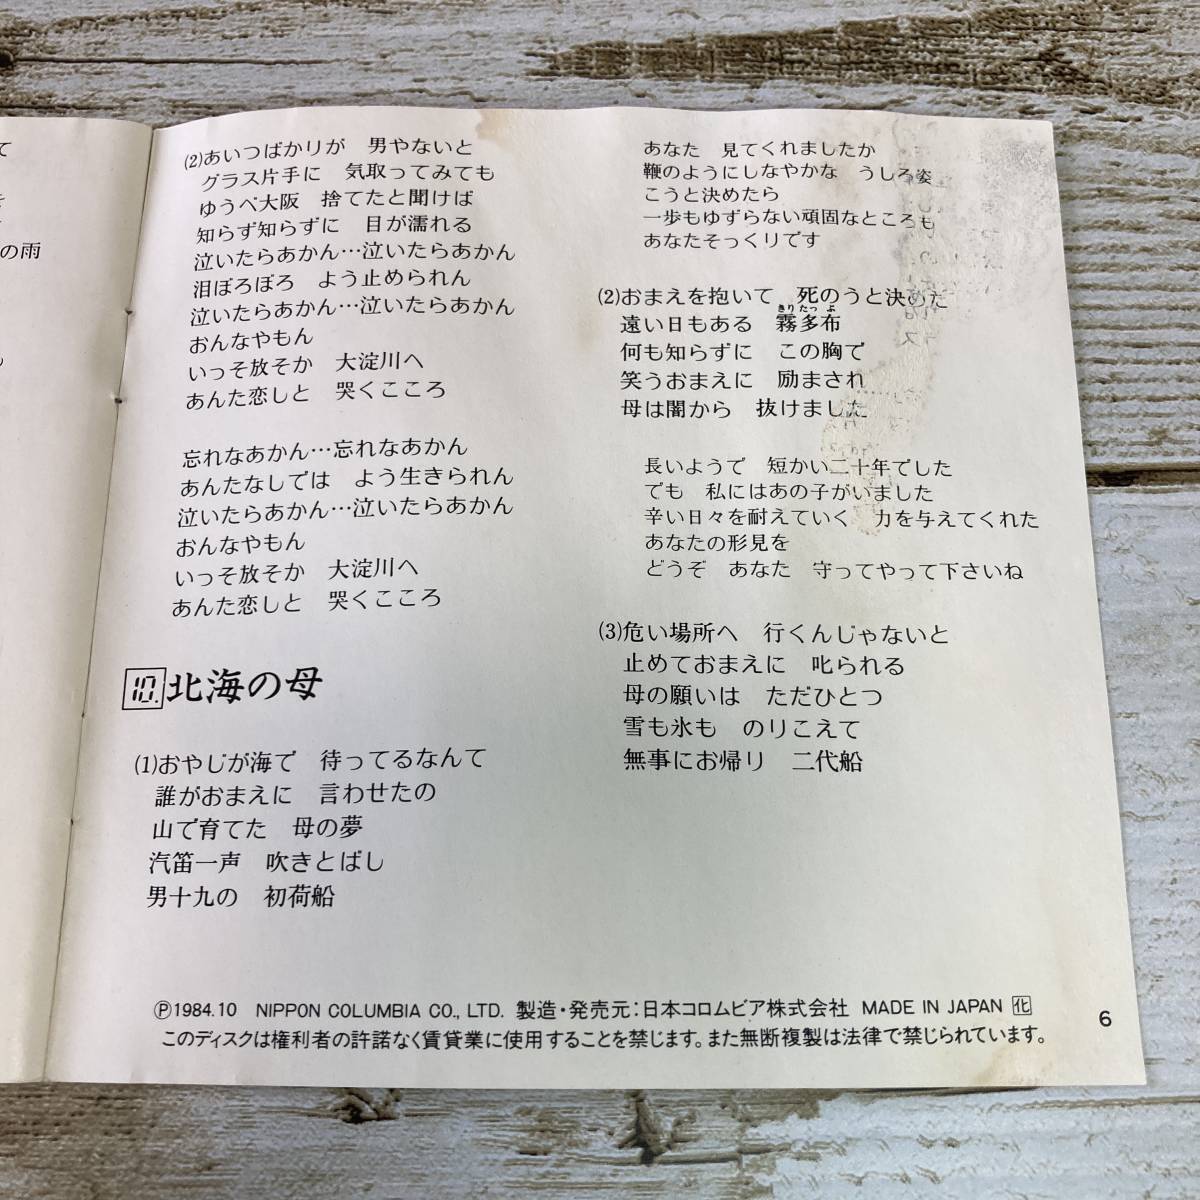 て
の雨
(2)あいつばかりが　男やないと
グラス片手に　気取ってみても
ゆうべ大阪　捨てたと聞けば
知らず知らずに　目が濡れる
泣いたらあかん…泣いたらあかん
泪ぼろぼろ　よう止められん
泣いたらあかん…泣いたらあかん
おんなやもん
いっそ放そか　大淀川へ
あんた恋しと　哭くこころ
忘れなあかん…忘れなあかん
あんたなしでは　よう生きられん
泣いたらあかん…泣いたらあかん
おんなやもん
いっそ放そか　大淀川へ
あんた恋しと　哭くこころ
10. 北海の母
(1)おやじが海で　待ってるなんて
誰がおまえに　言わせたの
山で育てた　母の夢
汽笛一声　吹きとばし
男十九の　初荷船
あなた　見てくれましたか
鞭のようにしなやかな　うしろ姿
こうと決めたら
一歩もゆずらない頑固なところも
あなたそっくりです
(2)おまえを抱いて　死のうと決めた
遠い日もある　霧多布
きりたっぷ
何も知らずに　この胸で
笑うおまえに　励まされ
母は闇から　抜けました
長いようで　短かい二十年でした
でも　私にはあの子がいました
辛い日々を耐えていく　力を与えてくれた
あなたの形見を
どうぞ　あなた　守ってやって下さいね
(3)危い場所へ　行くんじゃないと
止めておまえに　叱られる
母の願いは　ただひとつ
雪も氷も　のりこえて
無事にお帰り　二代船
Ⓟ1984.10　NIPPON COLUMBIA CO., LTD. 製造・発売元：日本コロムビア株式会社　MADE IN JAPAN 化
このディスクは権利者の許諾なく賃貸業に使用することを禁じます。また無断複製は法律で禁じられています。
6